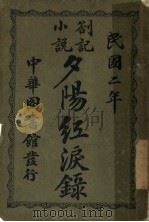 民國二年
劄記
小說
夕陽紅淚錄
中華圖書館發行